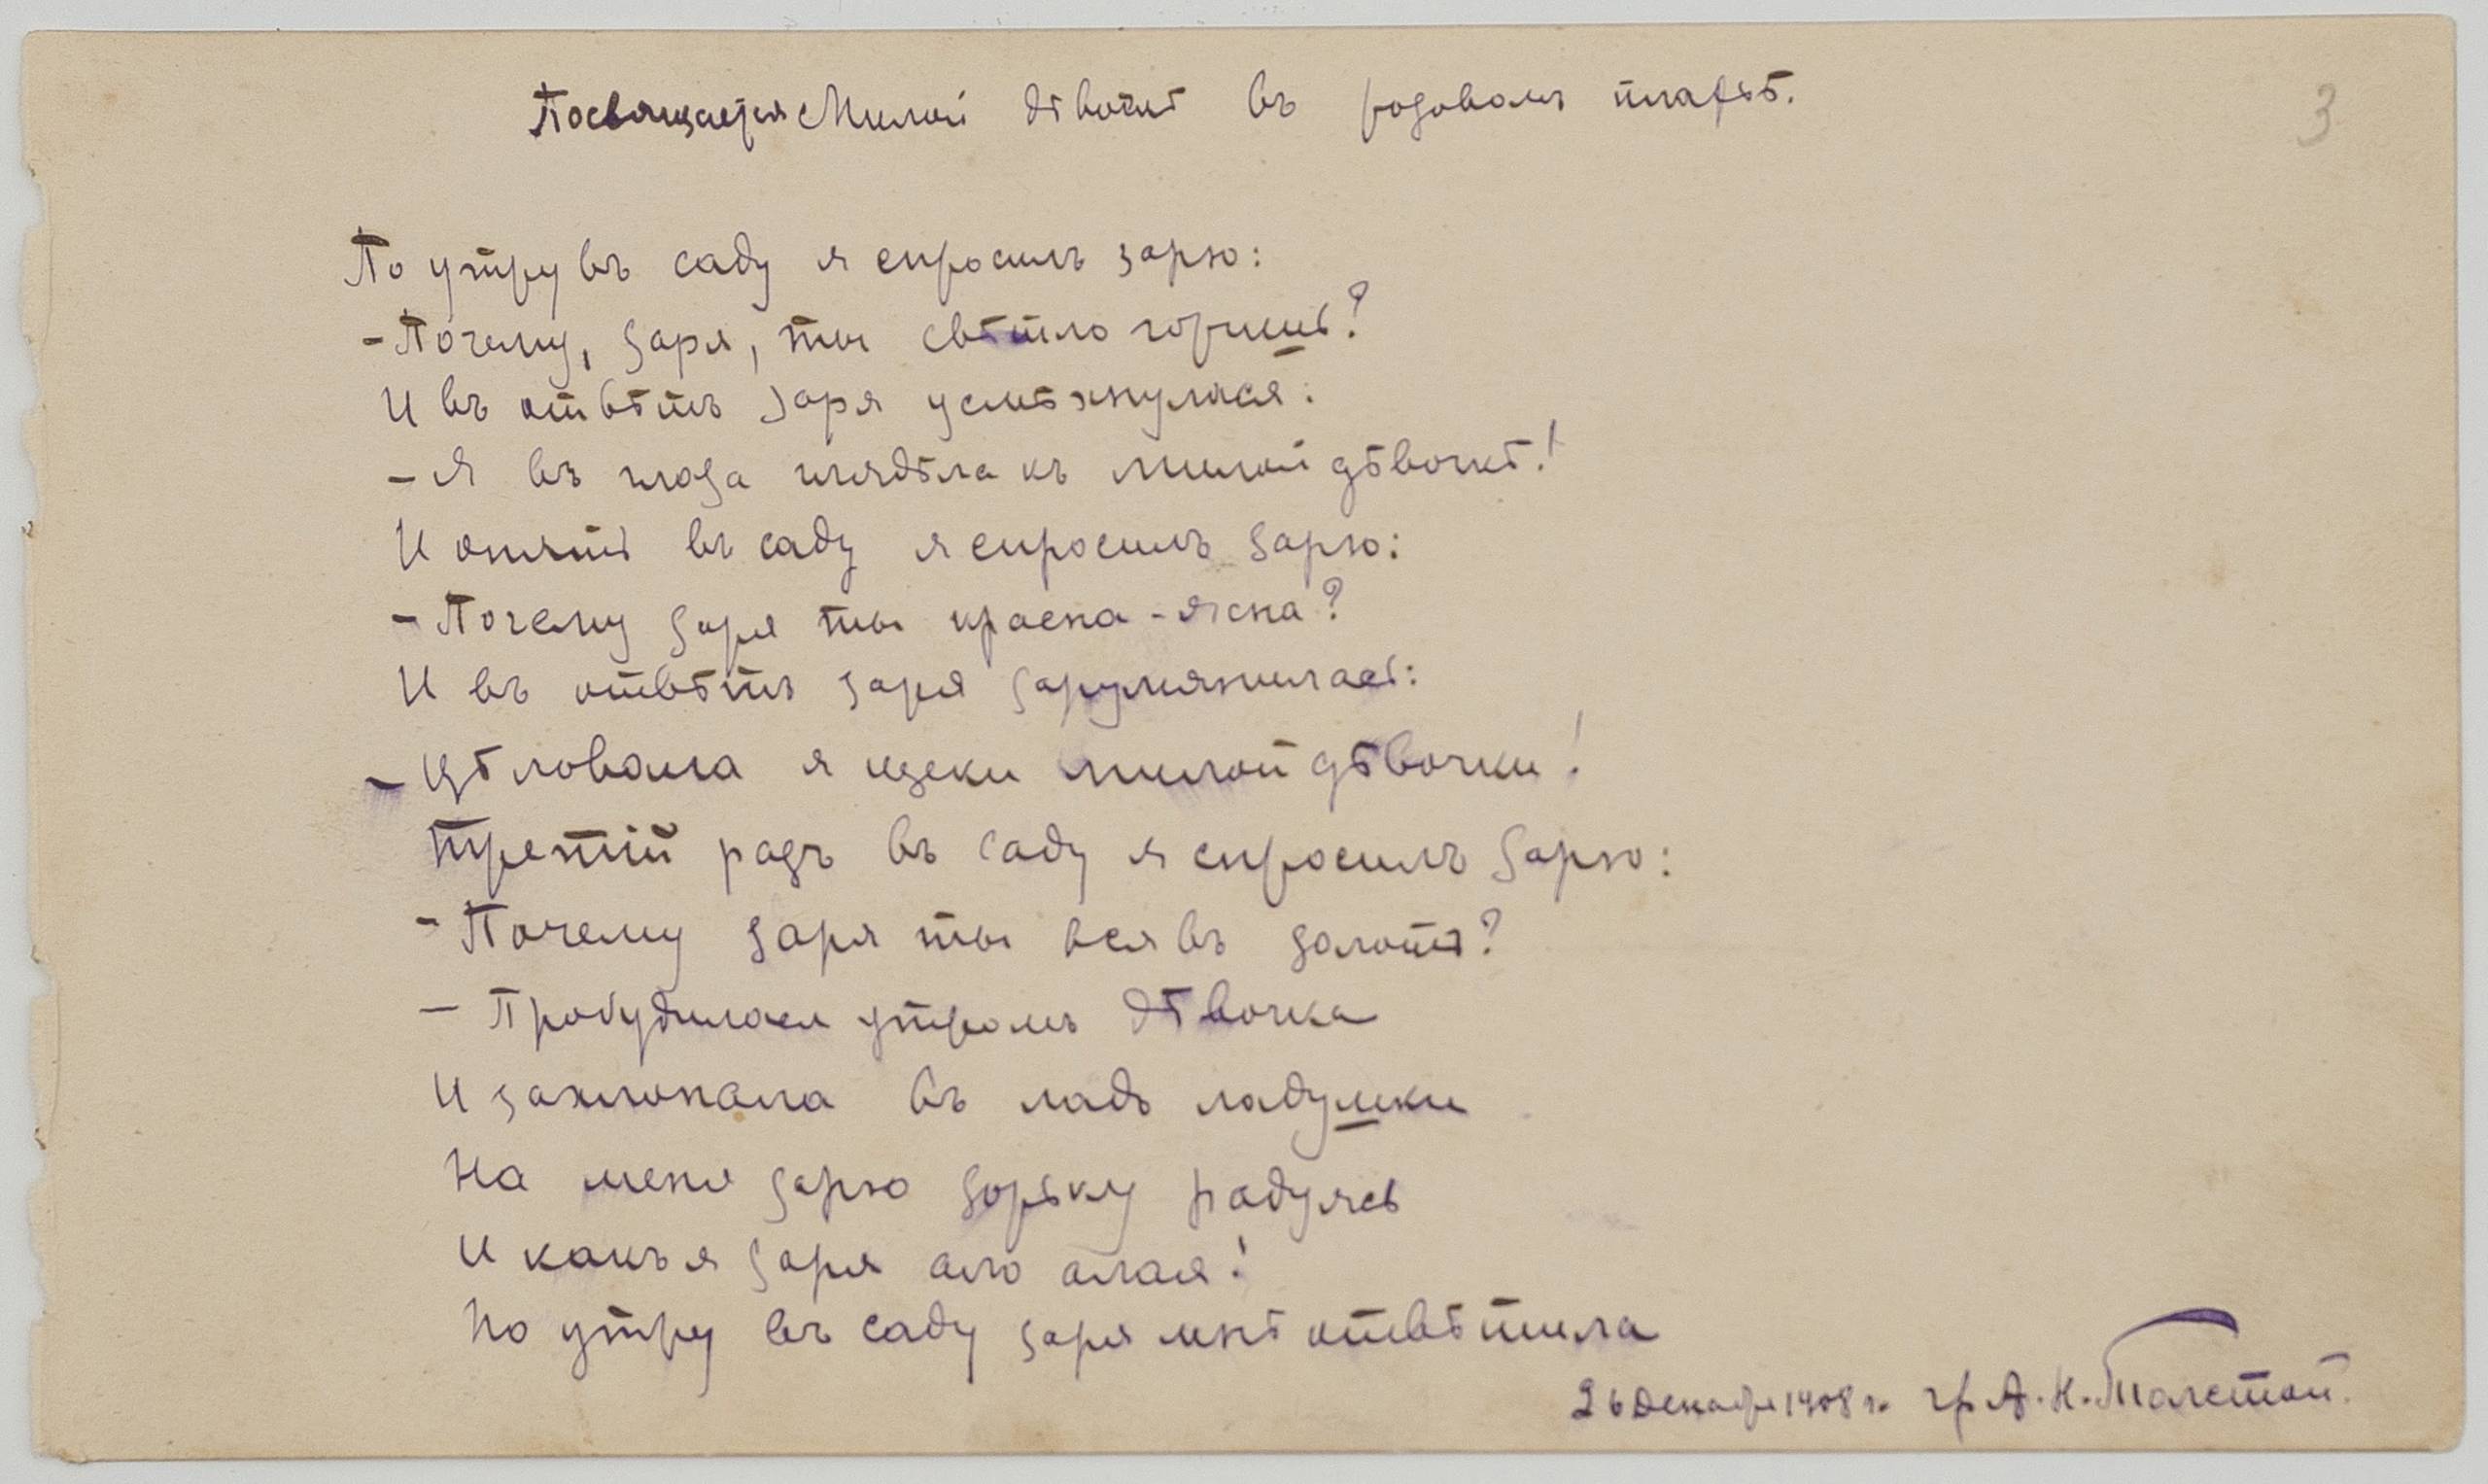 Посвящается Милой дѣвочкѣ въ розовомъ платьѣ.
3
По утру въ саду я спросилъ зарю:
- Почему, заря, ты свѣтло горишь?
И въ отвѣтъ заря усмѣхнулася:
- Я въ глаза глядѣла къ милой дѣвочкѣ!
И опять въ саду я спросилъ зарю:
- Почему заря ты красна-ясна?
И въ отвѣтъ заря зарумянилась:
- Цѣловала я щеки милой дѣвочки!
Третій разъ въ саду я спросилъ зарю:
- Почему заря ты вся въ золотѣ?
- Пробудилася утромъ дѣвочка
И захлопала въ ладъ ладушки
На меня зарю зорьку радуясь
И какъ я заря ало алая!
По утру въ саду заря мнѣ отвѣтила
26 Декабря 1908 г. гр А. Н. Толстой.